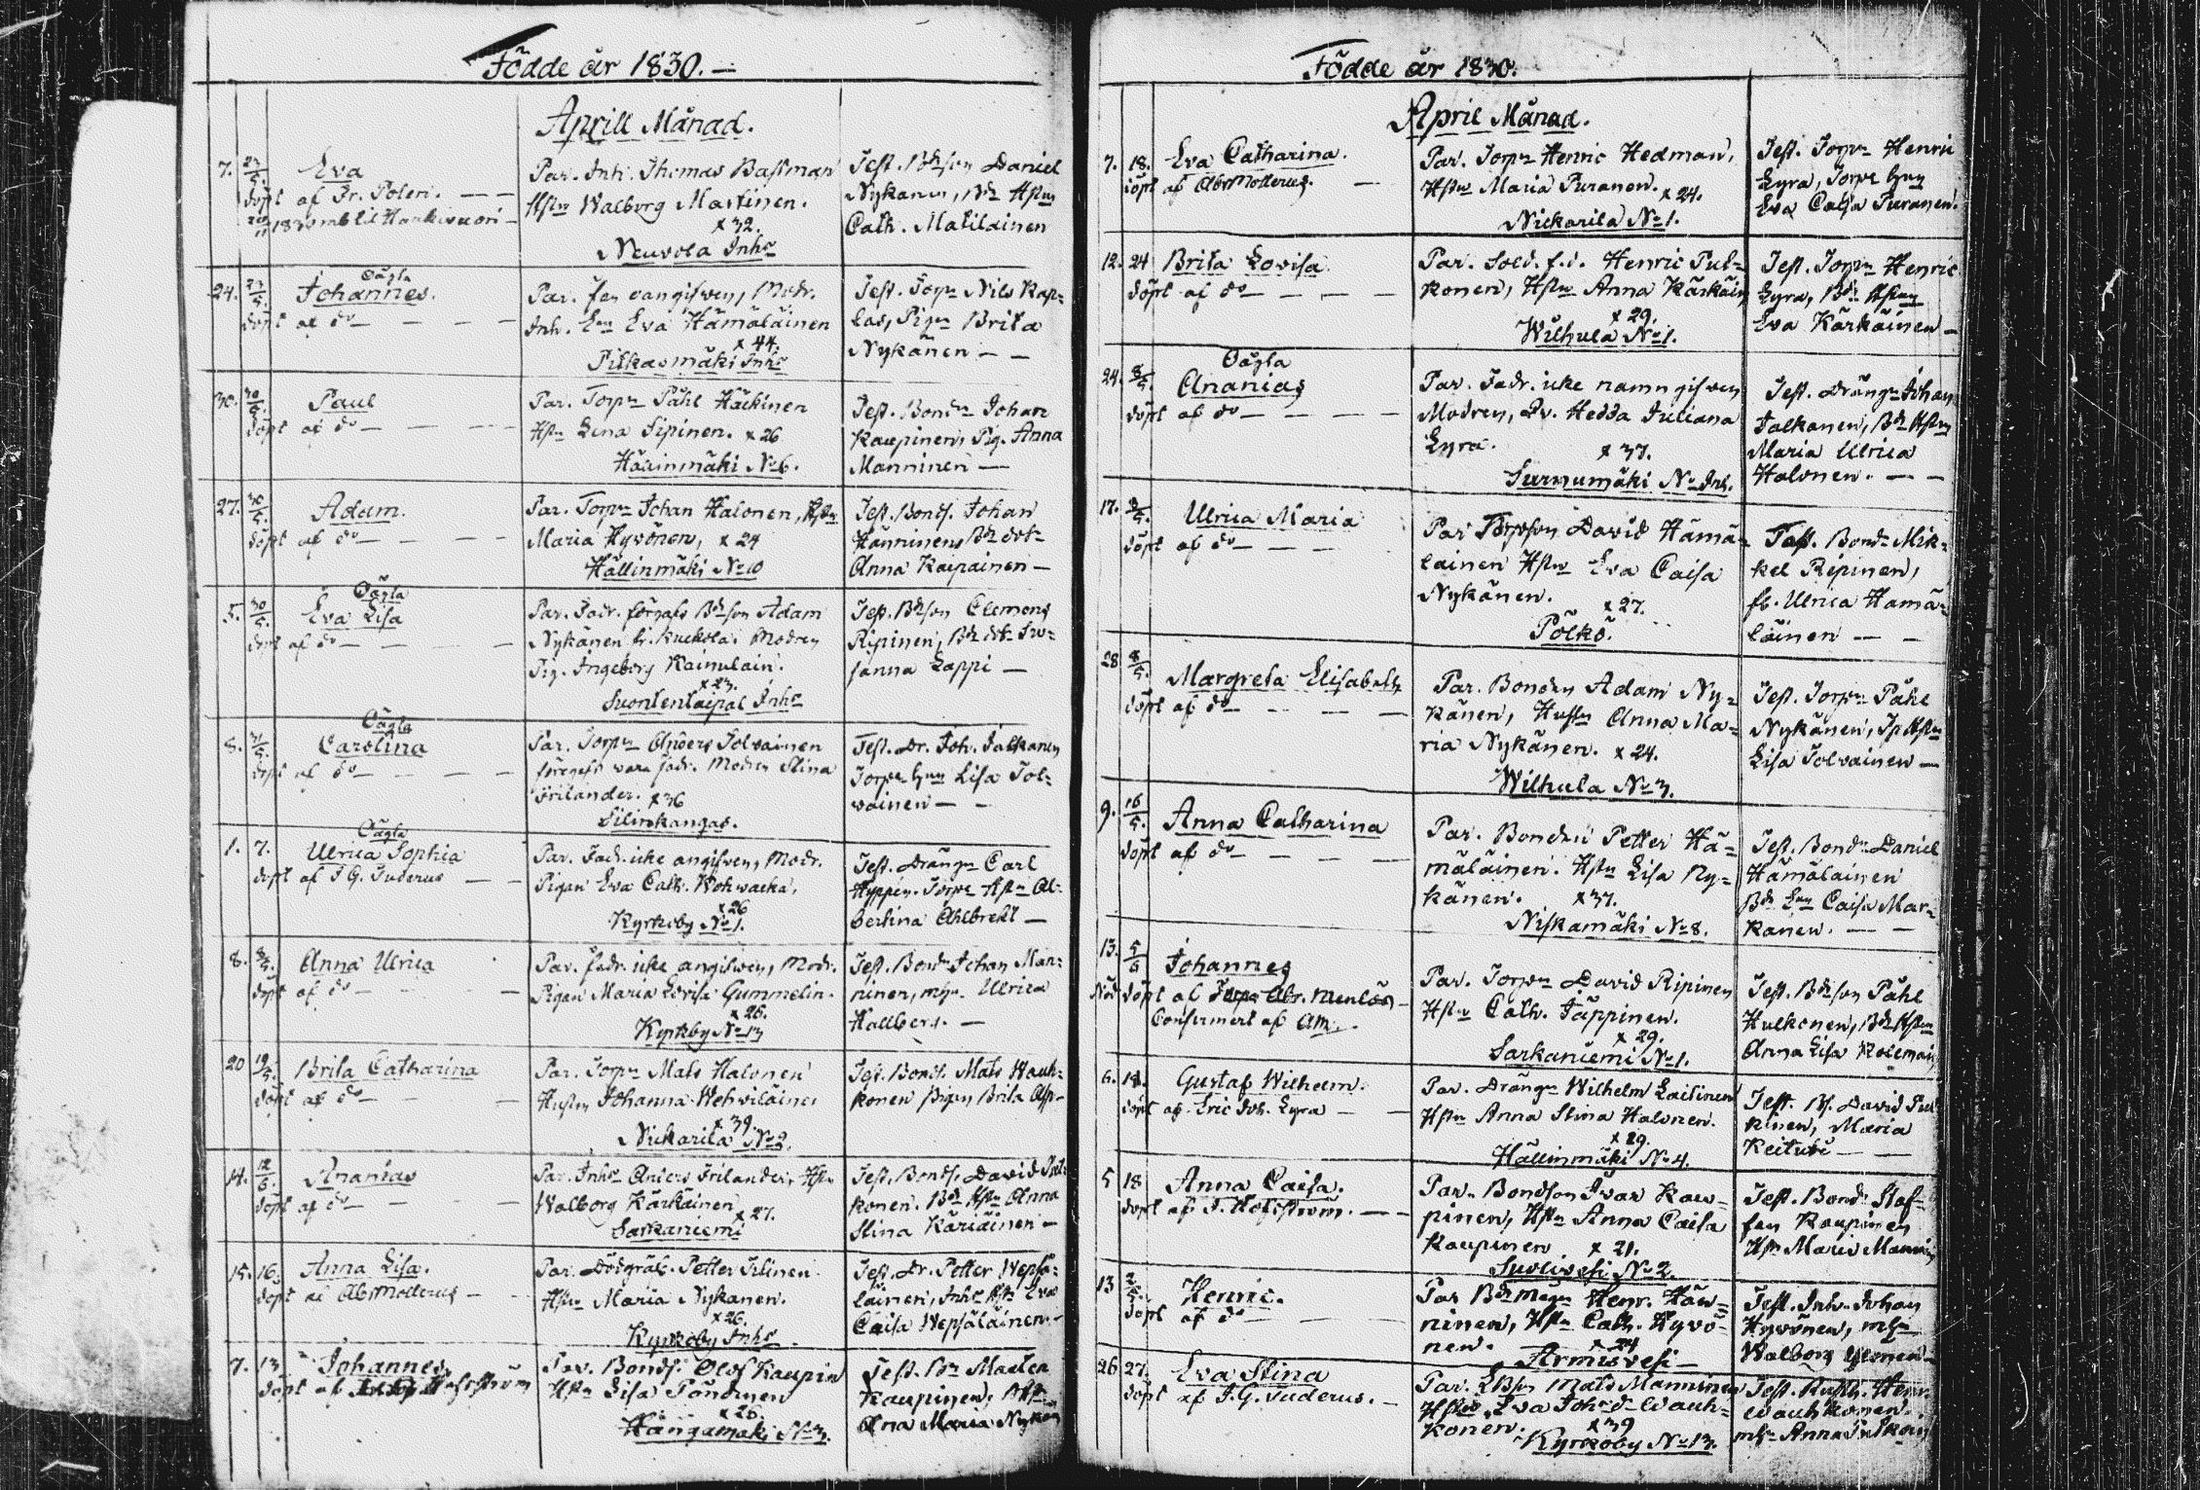 Födde år 1830. —
Aprill Månad.
7. 27/5. Eva
Döpt af Fr. Polen. — —
Par. Inh. Thomas Bastman
Hstr Walborg Martinen.
x 32.
Neuvola Inhs
Test. Bdeson Daniel
Nykänen, Bde Hstrn
Cath. Matilainen
24. 23/5. Oägta
Johannes.
döpt af do — — — —
Par. Fan oangifven, Modr.
Inh. Enn Eva Hämäläinen
x 44.
Pitkasmäki Inhs
Test. Torpn Nils Kop-
las, Pign Brita
Nykänen — —
30. 30/5. Paul
döpt af do — — — —
Par. Torpn Påhl Häckinen
Hstr Lena Sipinen. x 26
Hällinmäki No 6.
Test. Bondn Johan
Kaupinen, Pig. Anna
Manninen —
27. 30/5. Adam.
döpt af do — — — —
Par. Torpn Johan Halonen, Hstr
Maria Hyvönen, x 24
Hällinmäki No 10
Test. Bonds. Johan
Hänninen, Bde dotr
Anna Kaipainen —
5. 30/5. Oägta
Eva Lisa
döpt af do — — — —
Par. Fadr. förgafs Bdeson Adam
Nykänen fr. Kuckola. Modren
Pig. Ingeborg Kainulain.
x 23.
Suontentaipal Inhs
Test. Bdeson Clemens
Ripinen, Bde dotr Su-
sanna Lappi —
8. 31/5. Oägta
Carolina
döpt af do — — — —
Par. Torpn Anders Tolvainen
föregefs vara fadr. Modren Stina
Frilander. x 36
Silinkangas.
Test. Dr. Joh. Jalkanen
Torpr hun Lisa Tol-
vainen — —
1. 7. Oägta
Ulrica Sophia
döpt af J G. Tuderus — —
Par. Fadr. icke angifven, Modr.
Pigan Eva Cath. Wohwacka,
x 26
Kyrkoby No 1.
Test. Drängn Carl
Hyppén. Torpr Hstr Al-
bertina Ahlbrekt —
8. 8/5. Anna Ulrica
döpt af do — — —
Par. fadr. icke angifven, Modr.
Pigan Maria Lovisa Gummelin.
x 26.
Kyrkby No 13
Test. Bondn Johan Man-
ninen, mlle Ulrica
Hallberg. —
20 19/5. Brita Catharina
döpt af do — — —
Par. Torpn Mats Halonen
Hustrn Johanna Wehviläinen
x 39.
Nickarila No 2.
Test. Bonds. Mats Wauh-
konen Pigan Brita
14. 12/5. Ananias
döpt af do — — —
Par. Inhs Anders Frilander, Hstr
Walborg Kärkäinen
x 27.
Sarkaniemi
Test. Bonds. David Pul-
konen. Bde Hstr Anna
Stina Käriäinen —
15. 16. Anna Lisa.
döpt af Ab. Mollerus — —
Par. Dödgräf. Petter Tilinen
Hstr Maria Nykänen.
x 26.
Kyrkoby Inhs
Test. Dr. Petter Wepsä-
läinen, Inhs Hstr Eva
Caisa Wepsäläinen. —
7. 13 Johannes
döpt af
Par. Bonds. Olof Kaupin
Hstr Lisa Pöndinen
x 26.
Hängamäki No 3.
Test. Bn Maolen
Kaupinen, Hstr
Anna Maria Nykän
Födde år 1830.
April Månad.
7. 18. Eva Catharina.
döpt af Abr Mollerus. —
Par. Torpn Henric Hedman,
Hstr Maria Puranen. x 24.
Nickarila No 1.
Test. Torpn Henric
Lyra, Torpr hun
Eva Caisa Puranen.
12. 24 Brita Lovisa.
döpt af do — — — —
Par. Sold. f.d. Henric Pul-
konen, Hstr Anna Kärkäin
x 29.
Wilhula No 1.
Test. Torpn Henric
Lyra, Bde Hstrn
Eva Kärkäinen —
24. 8/5. Oägta
Ananias
döpt af do — — — —
Par. Fadr. icke namngifven
Modren, Qv. Hedda Juliana
Lyra. x 37.
Surnumäki No Inh.
Test. Drängn Johan
Jalkanen, Bde Hstrn
Maria Ulrica
Halonen. — —
17. 8/5. Ulrica Maria
döpt af do — — —
Par Torpson David Hämä-
läinen Hstr Eva Caisa
Nykänen. x 27.
Pölkö.
Test. Bondn Mik-
kel Ripinen,
fl. Ulrica Hämä-
läinen — —
28 8/5. Margreta Elisabeth
döpt af do — — — —
Par. Bonden Adam Ny-
känen, Hustr Anna Ma-
ria Nykänen. x 24.
Wilhula No 3.
Test. Torpn Påhl
Nykänen, Tp Hstrn
Lisa Tolvainen —
9. 16/5. Anna Catharina
döpt af do — — — —
Par. Bonden Petter Hä-
mäläinen. Hstr Lisa Ny-
känen. x 37.
Niskamäki No 8.
Test. Bondn Daniel
Hämäläinen
Bde Enn Caisa Mar-
kanen. — —
13. 5/6 Johannes
Nöd döpt af
Confirmert af AM.
Par. Torpn David Ripinen
Hstr Cath. Jäppinen.
x 29.
Sarkaniemi No 1.
Test. Bdeson Påhl
Hulkonen, Bde Hstrn
Anna Lisa Kolemain
6. 18. Gustaf Wilhelm.
döpt af Eric Joh. Lyra — —
Par. Drängn Wilhelm Laitinen
Hstr Anna Stina Halonen.
x 29.
Hällinmäki No 4.
Test. Bs. David Pul
kinen, Maria
— —
5 18 Anna Caisa.
döpt af J. Hofström. — —
Par. Bondson Ivar Kau-
pinen, Hstr Anna Caisa
Kaupinen x 21.
Suolivesi No 2.
Test. Bondn Staf-
fan Kaupinen
Hstr Maria Mannin
13 2/5. Henric.
döpt af do — — —
Par Bde Mågn Henr. Hän-
ninen, Hstr Cath. Hyvö-
nen. x 24
Armisvesi —
Test. Inh. Johan
Hyvönen, mlle
Walborg
26 27. Eva Stina
döpt af J. G. Tuderus. —
Par. Mats Manninen
Hstr Eva Johsdr Wauh-
konen. x 39
Kyrkoby No 13.
Test. Rusth. Henr
Wauhkonen.
mlle Anna Pulkon